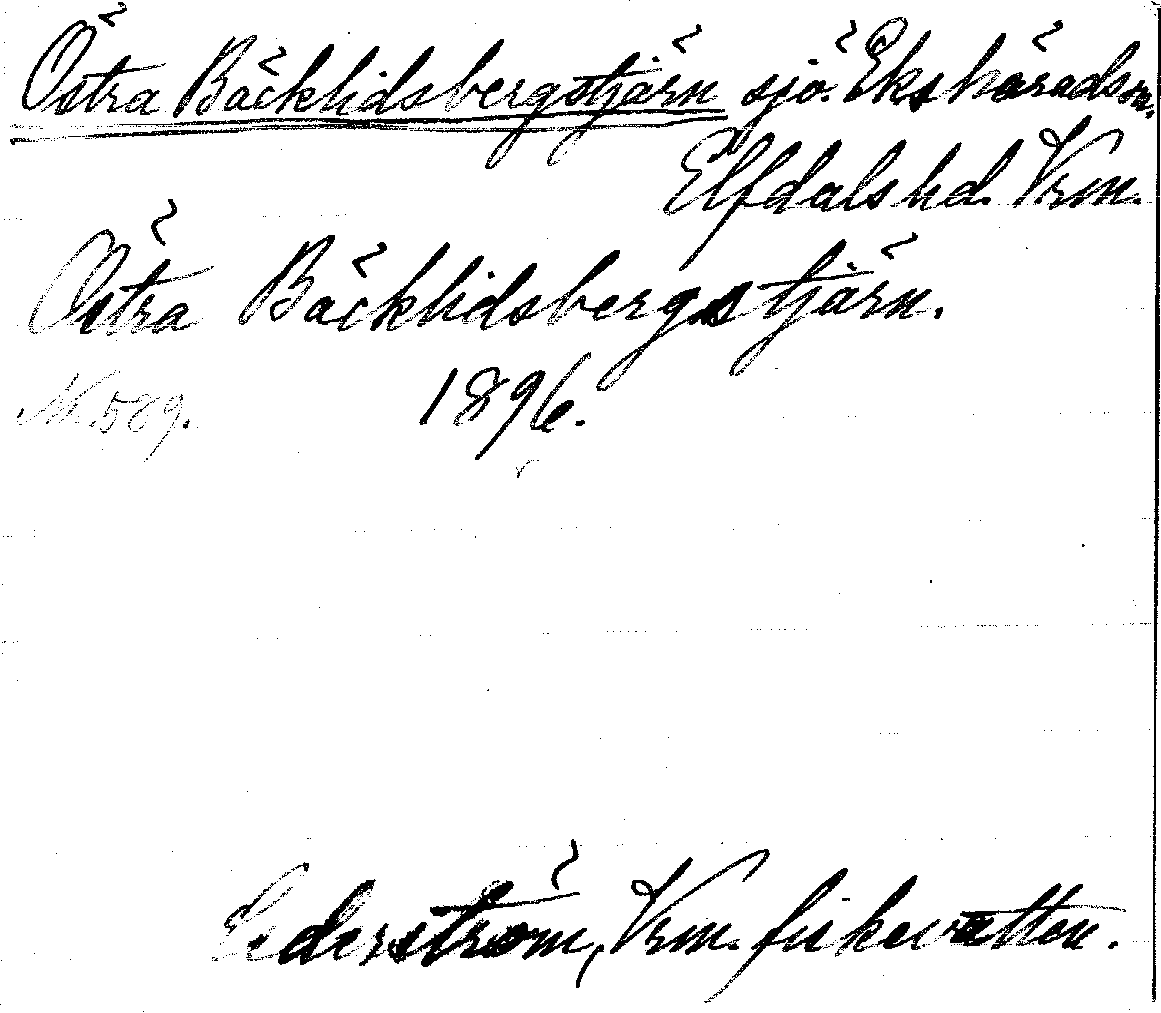 Östra Bäcklidsbergstjärn sjö. Ekshärads sn.
Elfdals hd. Vrm.
Östra Bäcklidsbergstjärn.
N. 589. 1896.
Cederström, Vrm. fiskevatten.